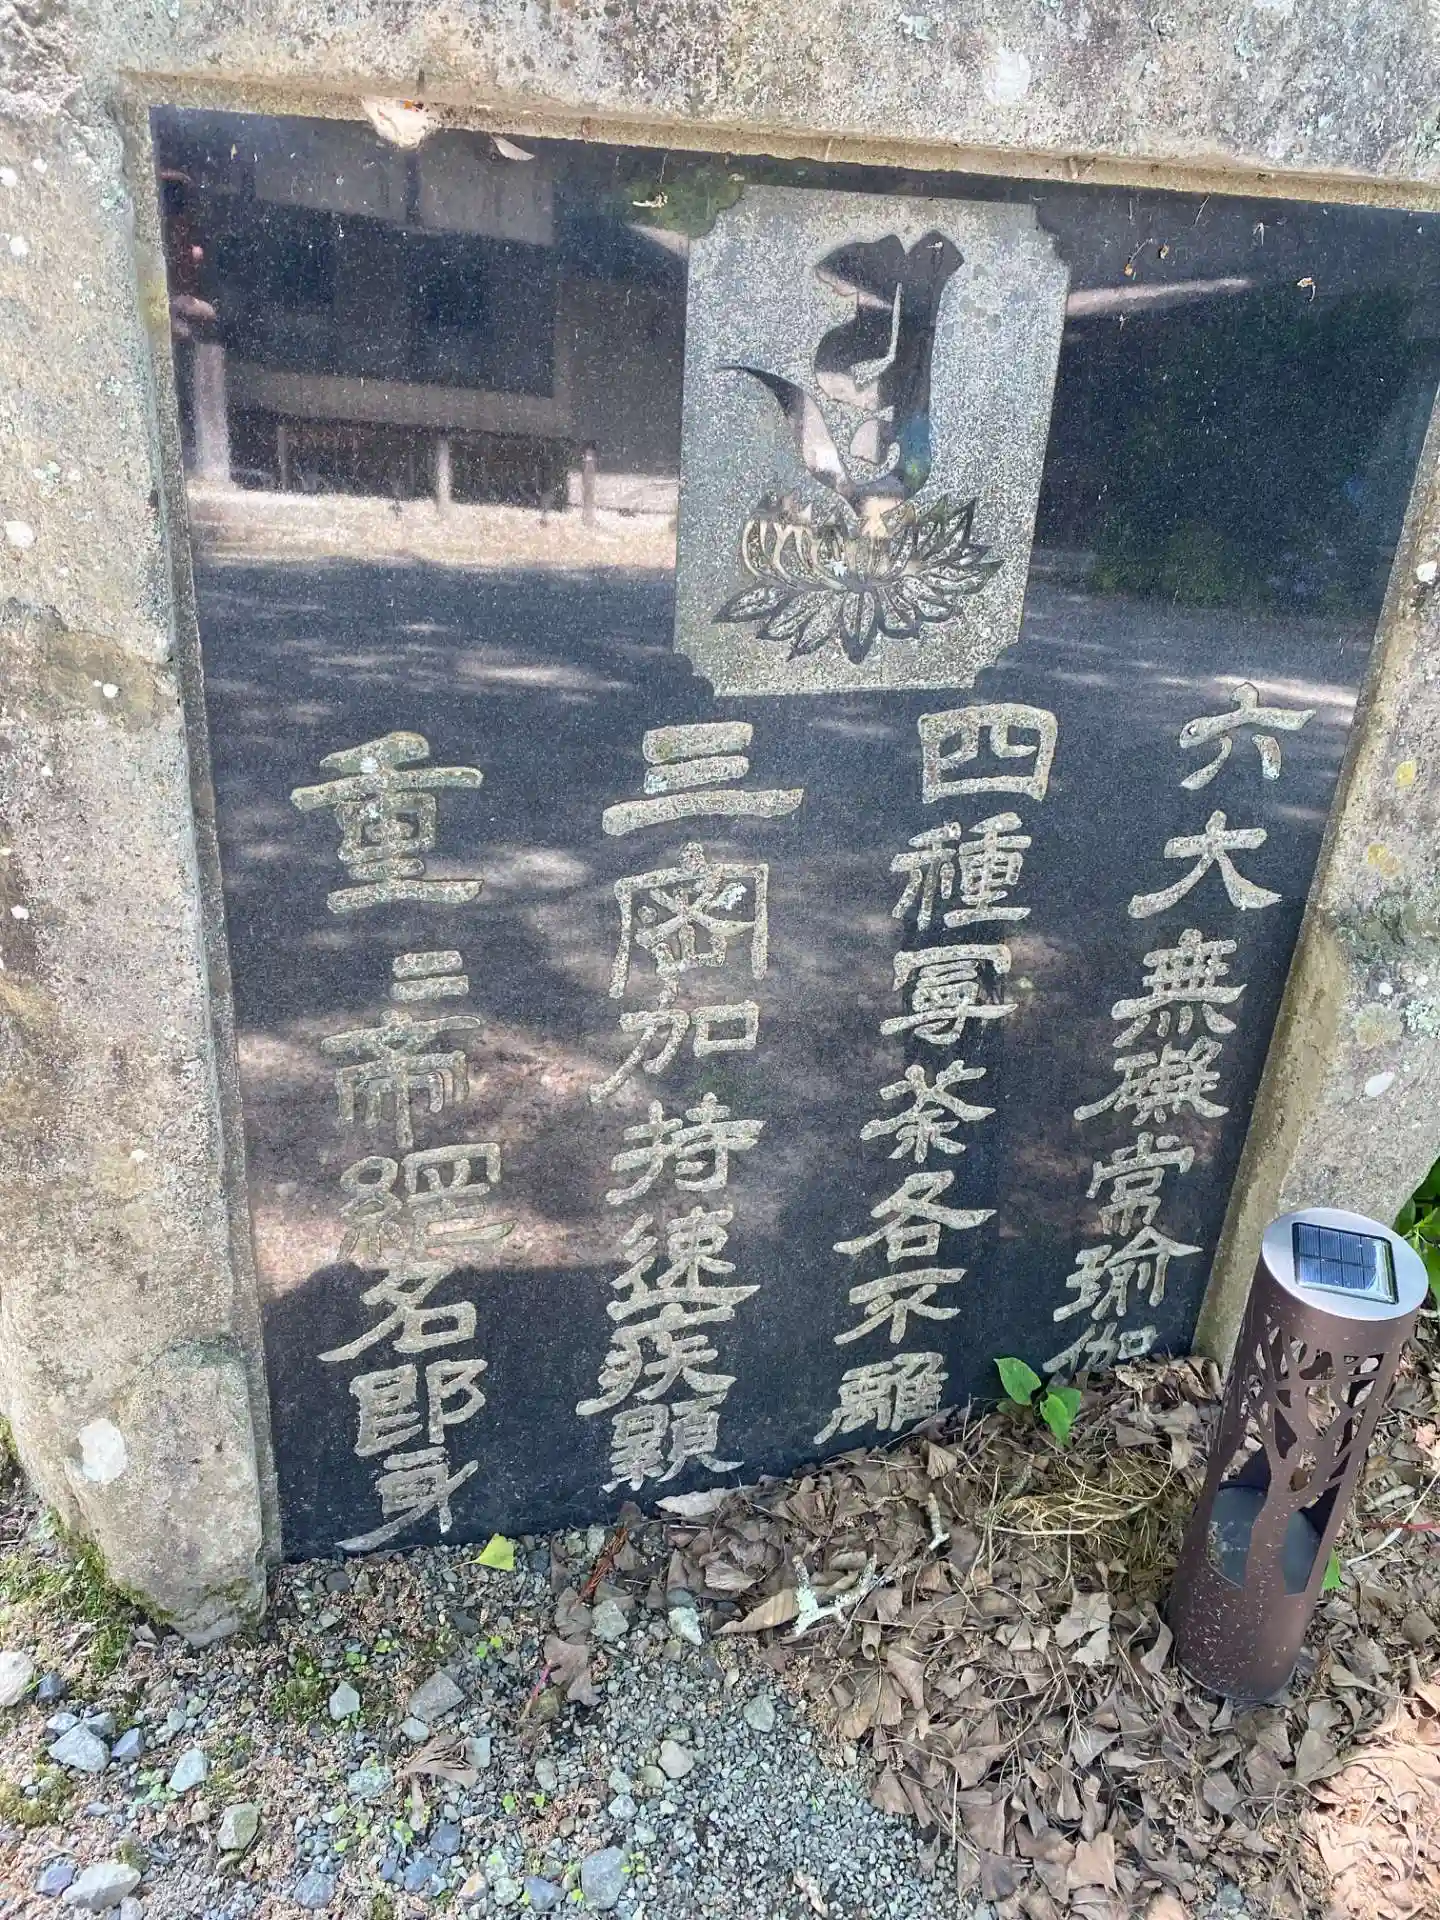 六大無礙常瑜伽
四種曼荼各不離
三密加持速疾顯
重〻帝網名即身